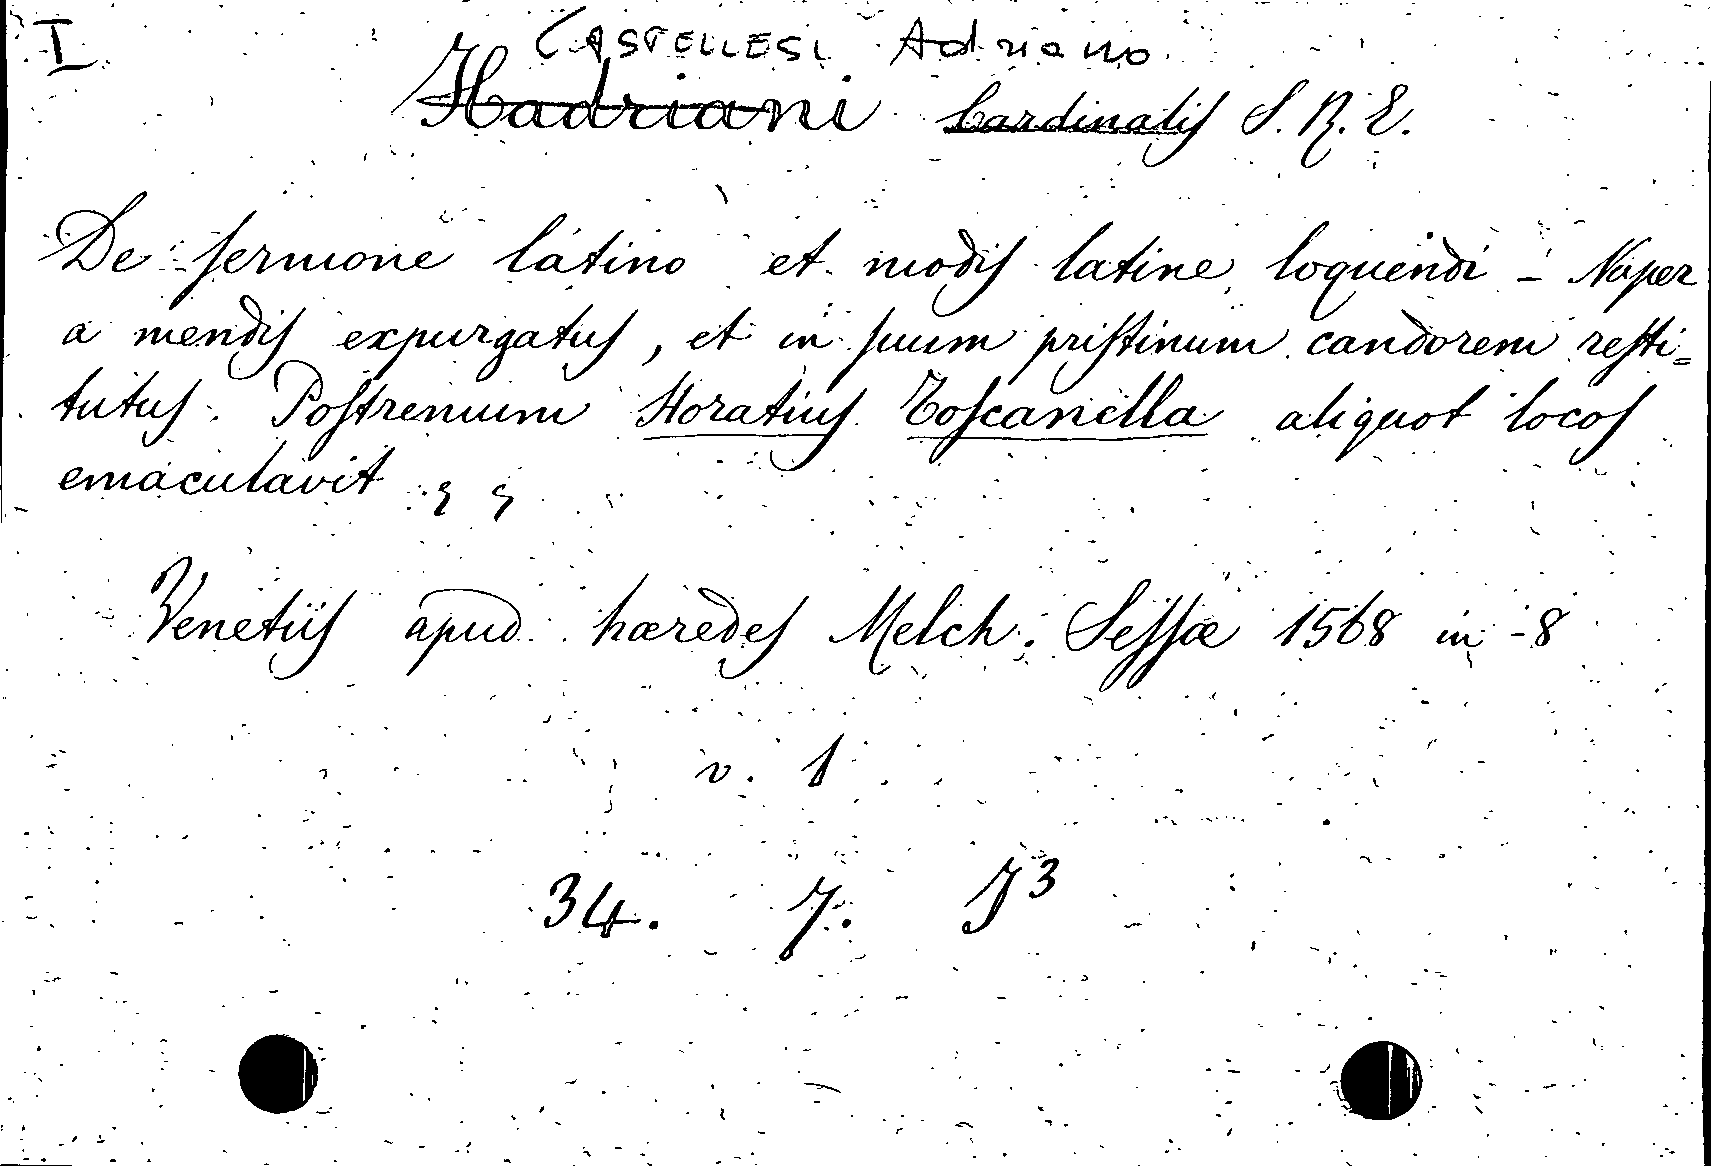 I
CASTELLESI Adriano
Hadriani Cardinalis S. R. E.
De sermone latino et modis latine loquendi – Nuper
a mendis expurgatus, et in suum pristinum candorem resti=
tutus. Postremum Horatius Toscanella aliquot locos
emaculavit
Venetiis apud hæredes Melch. Sessæ 1568 in -8
v. 1
34. 7. J³